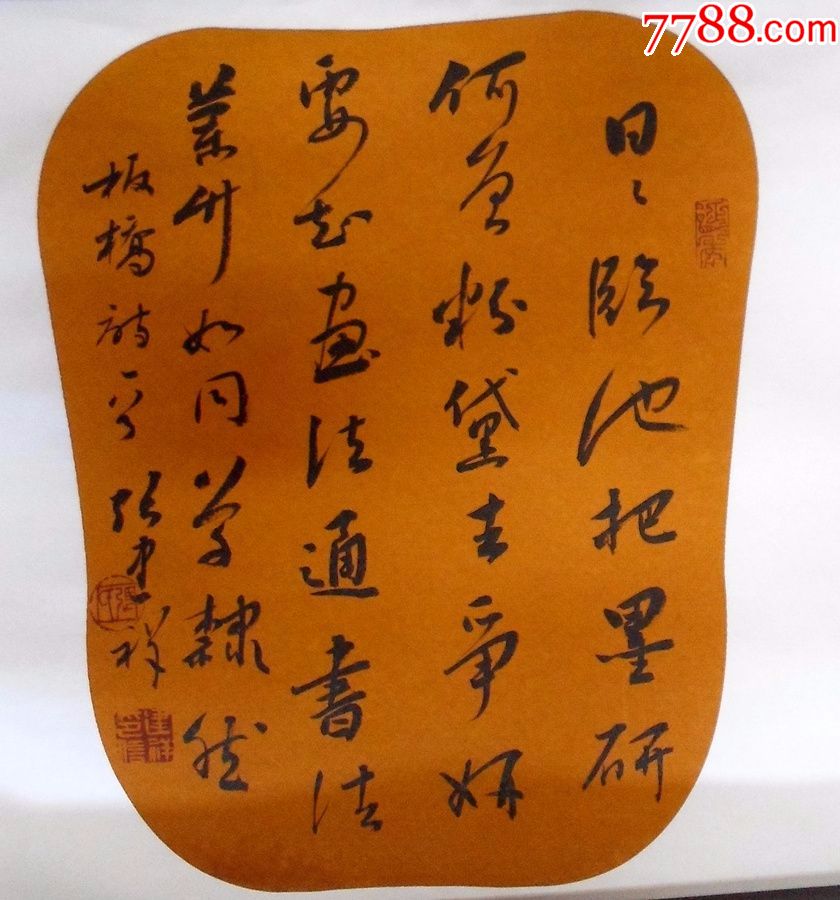 7788.com
日〻臨池把墨研
何曾粉黛去爭妍
要知畫法通書法
蘭竹如同草隸然
板橋詩一首 張建祥
張
建祥印信